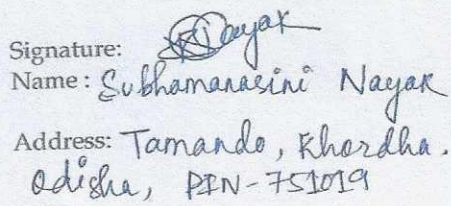 Signature: Nayak
Name : Subhamanasini Nayak
Address: Tamando, Khordha.
Odisha, PIN-751019